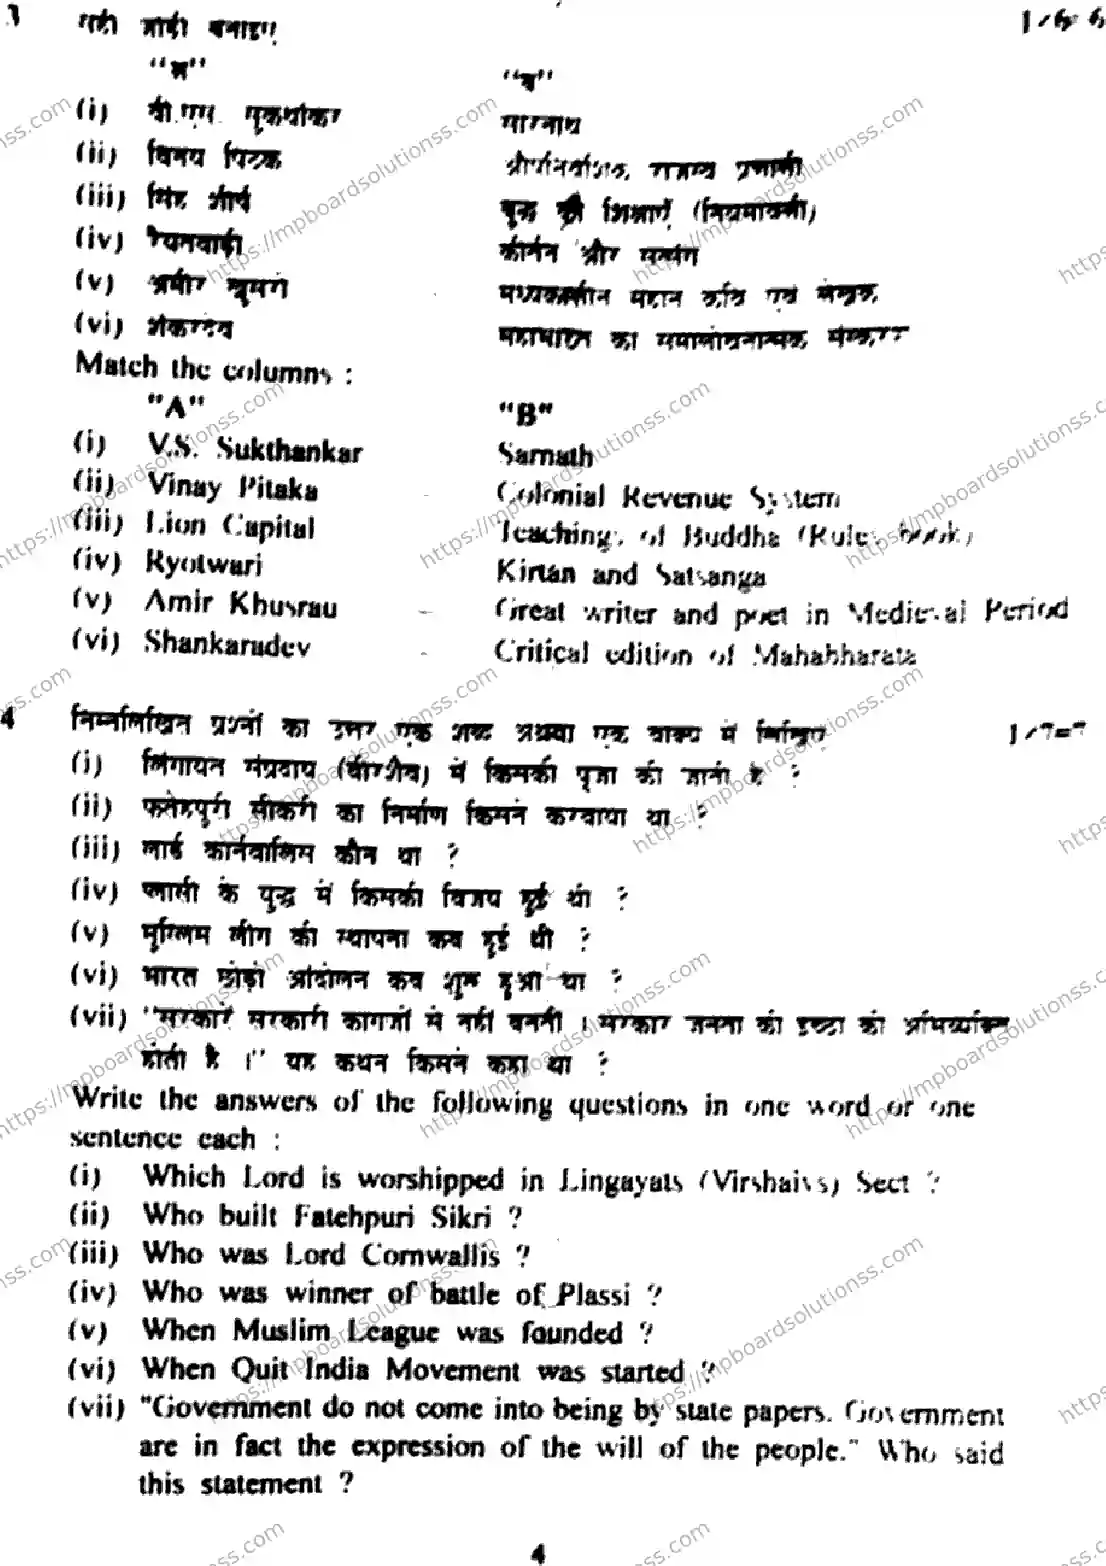 3 सही जोड़ी बनाइए 1×6=6
"अ" "ब"
(i) वी.एस. सुकथांकर सारनाथ
(ii) विनय पिटक औपनिवेशिक राजस्व प्रणाली
(iii) सिंह शीर्ष बुद्ध की शिक्षाएँ (नियमावली)
(iv) रैयतवाड़ी कीर्तन और सत्संग
(v) अमीर खुसरो मध्यकालीन महान कवि एवं लेखक
(vi) शंकरदेव महाभारत का समालोचनात्मक संस्करण
Match the columns :
"A" "B"
(i) V.S. Sukthankar Sarnath
(ii) Vinay Pitaka - Colonial Revenue System
(iii) Lion Capital Teachings of Buddha (Rules book)
(iv) Ryotwari Kirtan and Satsanga
(v) Amir Khusrau - Great writer and poet in Medieval Period
(vi) Shankaradev - Critical edition of Mahabharata
4 निम्नलिखित प्रश्नों का उत्तर एक शब्द अथवा एक वाक्य में लिखिए 1×7=7
(i) लिंगायत संप्रदाय (वीरशैव) में किसकी पूजा की जाती है ?
(ii) फतेहपुरी सीकरी का निर्माण किसने करवाया था ?
(iii) लार्ड कार्नवालिस कौन था ?
(iv) प्लासी के युद्ध में किसकी विजय हुई थी ?
(v) मुस्लिम लीग की स्थापना कब हुई थी ?
(vi) भारत छोड़ो आंदोलन कब शुरू हुआ था ?
(vii) "सरकारें सरकारी कागजों से नहीं बनती । सरकार जनता की इच्छा की अभिव्यक्ति
होती है ।" यह कथन किसने कहा था ?
Write the answers of the following questions in one word or one
sentence each :
(i) Which Lord is worshipped in Lingayats (Virshaivs) Sect ?
(ii) Who built Fatehpuri Sikri ?
(iii) Who was Lord Cornwallis ?
(iv) Who was winner of battle of Plassi ?
(v) When Muslim League was founded ?
(vi) When Quit India Movement was started ?
(vii) "Government do not come into being by state papers. Government
are in fact the expression of the will of the people." Who said
this statement ?
4
https://mpboardsolutionss.com